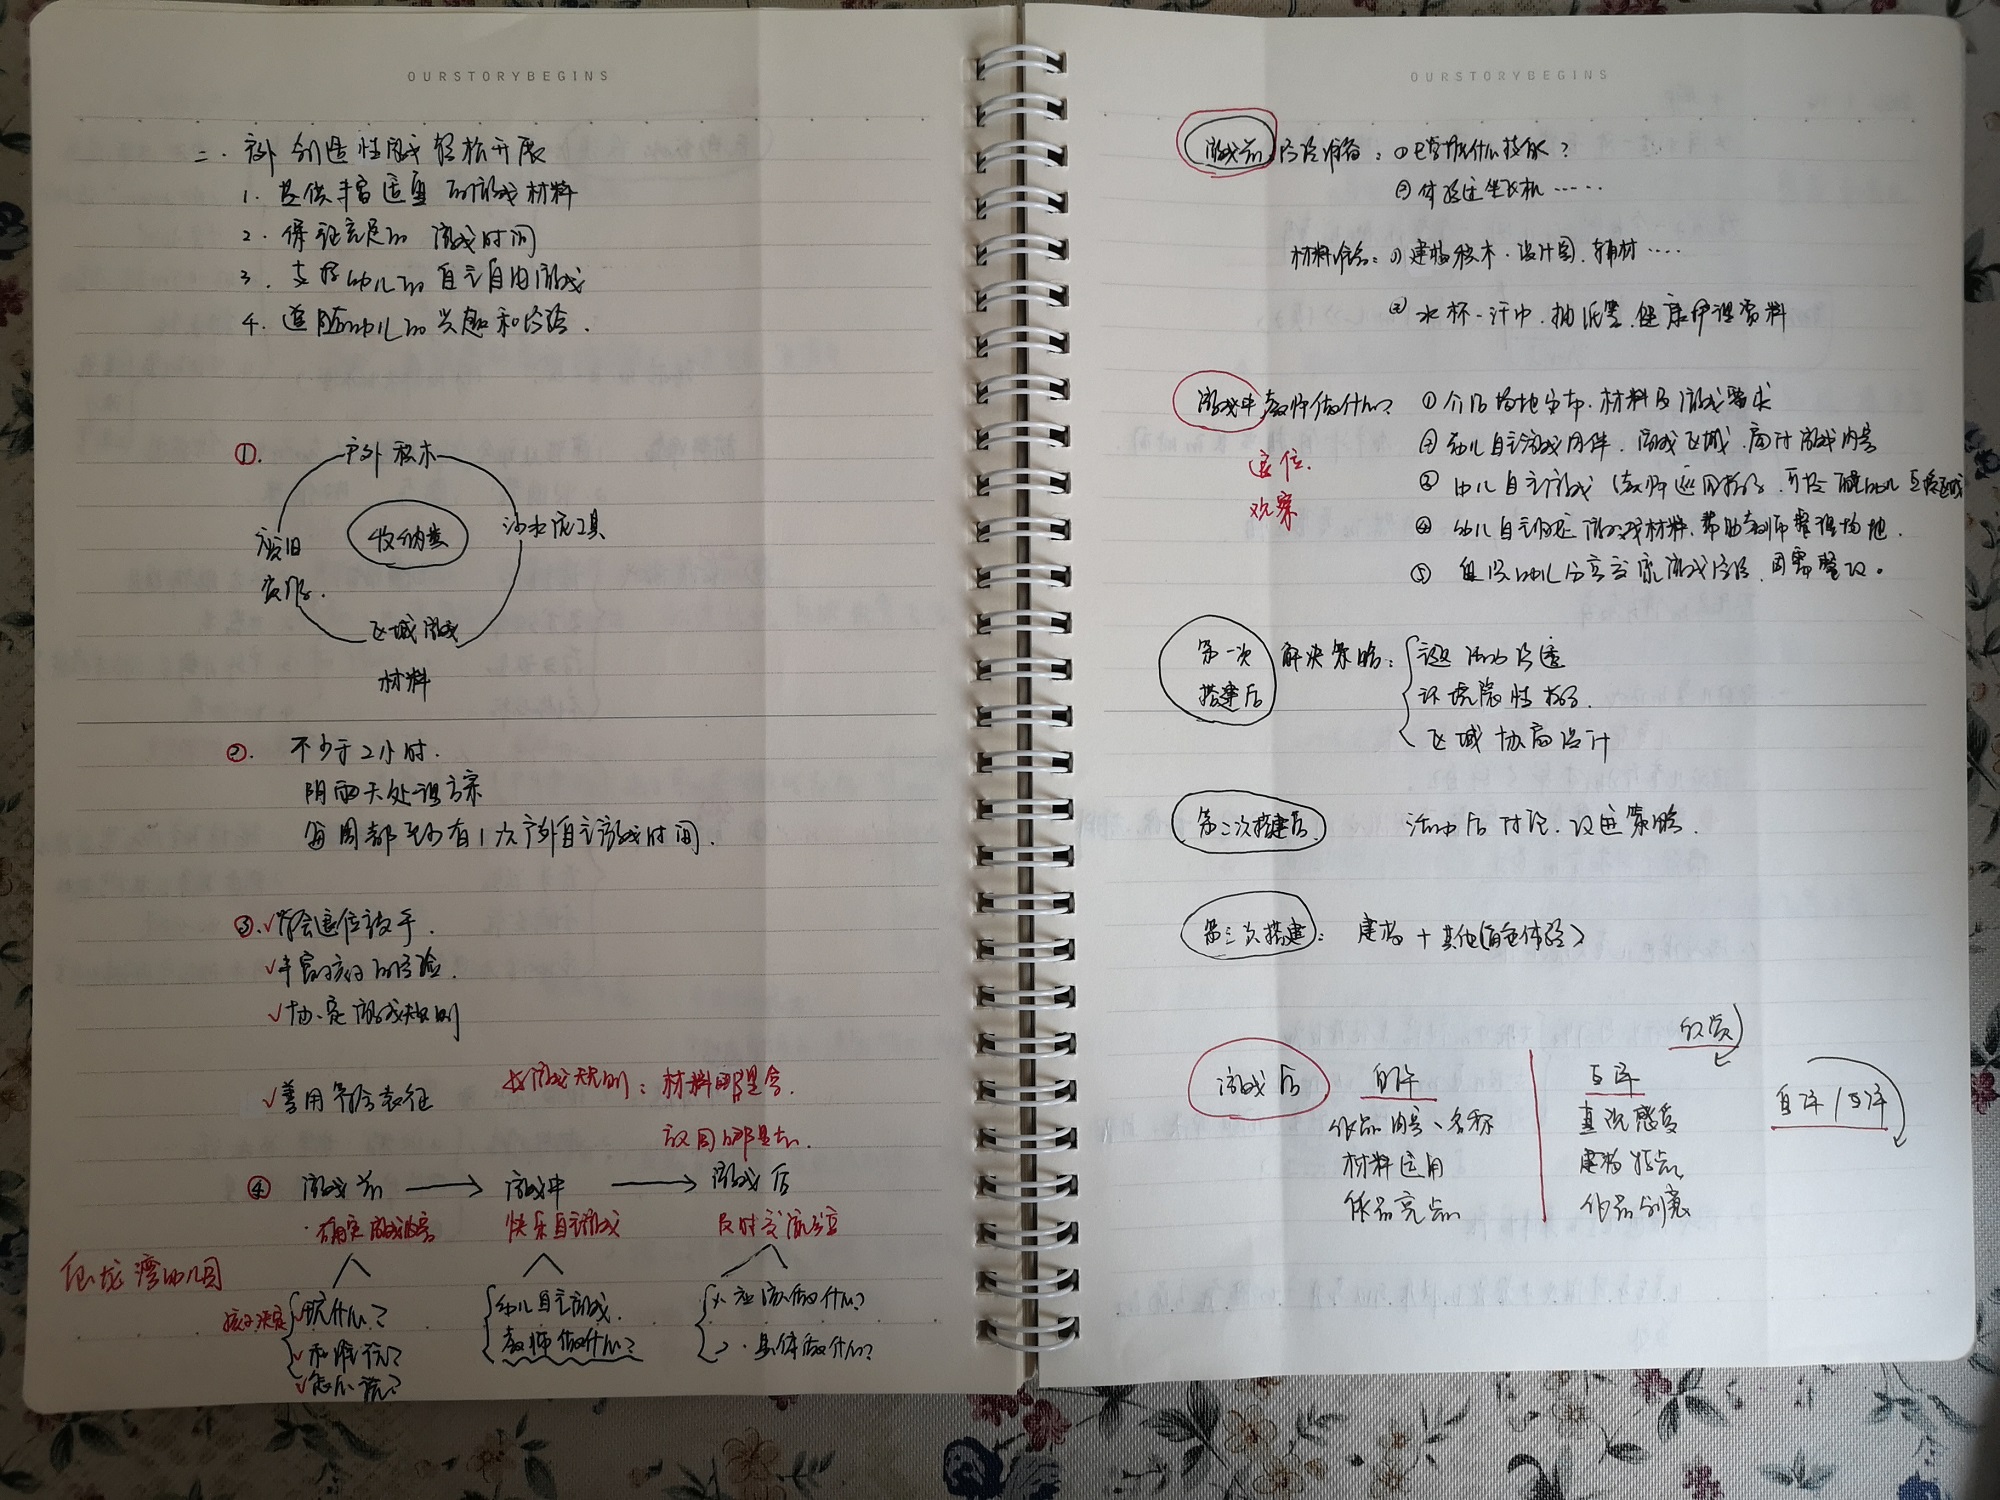 OURSTORYBEGINS
二.户外创造性游戏轻松开展
1.提供丰富适宜的游戏材料
2.保证充足的游戏时间
3.支持幼儿的自主自由游戏
4.追随幼儿的兴趣和经验.
①.户外积木
收纳类
沙水池工具
废旧
区域游戏
材料
②.不少于2小时.
阴雨天处理方案
每周都至少有1次户外自主游戏时间.
③.√学会退位放手.
√丰富孩子的经验.
√协定游戏规则
√善用符合表征
游戏规则:材料哪里拿.
放回哪里去.
④ 游戏前 → 游戏中 → 游戏后
·确定游戏内容 快乐自主游戏 及时交流分享
伍龙湾幼儿园
孩子决定 √玩什么? 幼儿自主游戏. 1.应该做什么?
√和谁玩? 教师做什么? 2.具体做什么?
√怎么玩?
OURSTORYBEGINS
游戏前 经验准备:①已掌握什么技能?
②体验过坐飞机……
材料准备:①建构积木.设计图.辅材……
②水杯.汗巾.抽纸等.健康护理资料
游戏中 教师做什么? ①介绍场地分布.材料及游戏要求
②幼儿自主游戏同伴.游戏区域.商讨游戏内容
退位.
③幼儿自主游戏(教师巡回指导.
观察
④幼儿自主归还游戏材料.帮助教师整理场地.
⑤组织幼儿分享交流游戏经验.
第一次 解决策略:
搭建后 环境隐性指导.
区域协商设计
第二次搭建后 活动后讨论.改进策略.
第三次搭建:建构+其他(角色体验)
欣赏
游戏后 自评 互评 自评/互评
作品内容、名称 直观感受
材料运用 建构特点
作品亮点 作品创意